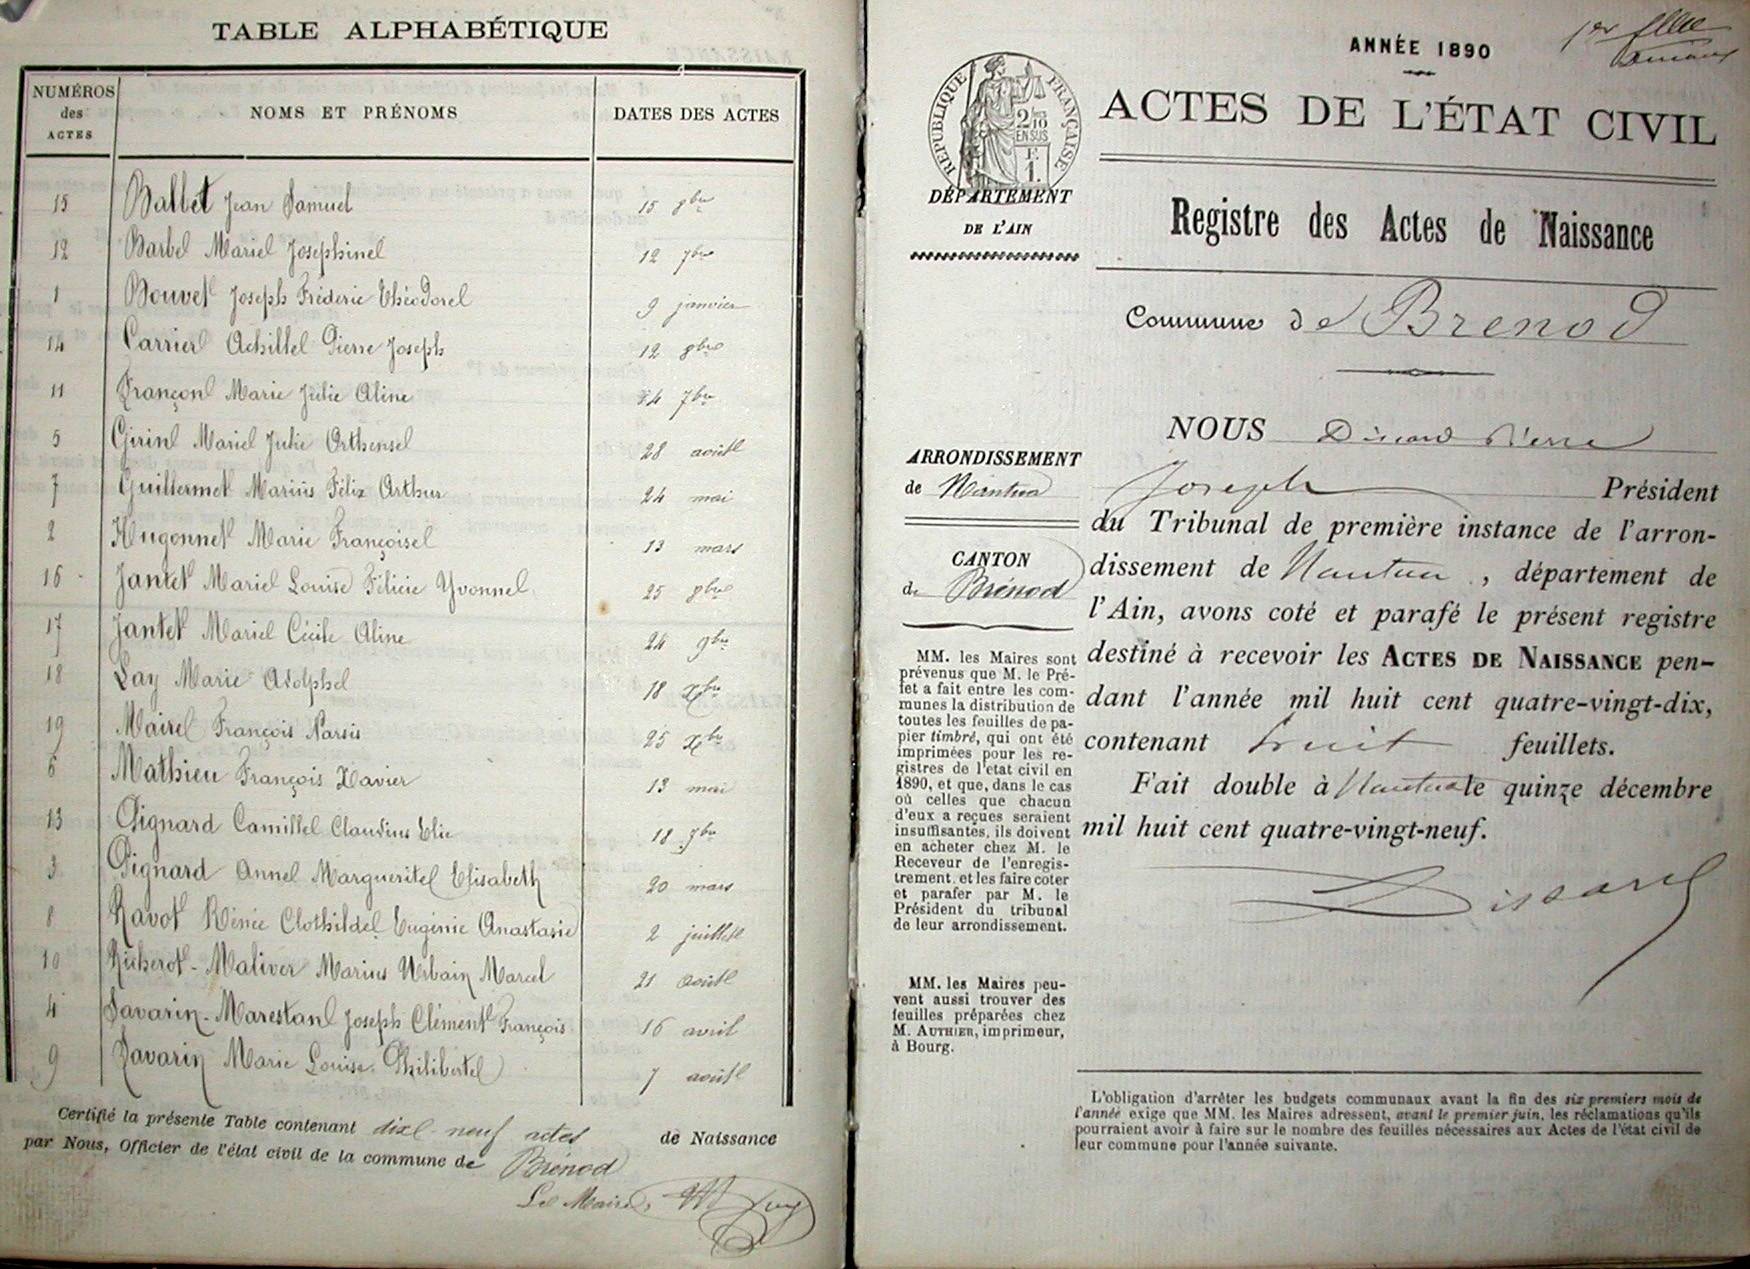 TABLE ALPHABÉTIQUE
NUMÉROS des ACTES NOMS ET PRÉNOMS DATES DES ACTES
15 Ballet Jean Samuel 15 8bre
12 Barbe Marie Josephine 12 7bre
1 Bouvet Joseph Fréderic Théodore 9 janvier
14 Carrier Achille Pierre Joseph 12 8bre
11 Françon Marie Julie Aline 4 7bre
5 Girin Marie Julie Orthense 28 août
7 Guillermet Marius Félix Arthur 24 mai
2 Hugonnet Marie Françoise 13 mars
16 Jantet Marie Louise Félicie Yvonne 25 8bre
17 Jantet Marie Cécile Aline 24 9bre
18 Lay Marie Adolphe 18 Xbre
19 Maire François Narsis 25 Xbre
6 Mathieu François Xavier 13 mai
13 Pignard Camille Claudius Elie 18 7bre
3 Pignard Anne Marguerite Elisabeth 20 mars
8 Ravot Rénée Clothilde Eugénie Anastasie 2 juillet
10 Richerot-Maliver Marius Urbain Marcel 21 août
4 Savarin-Marestan Joseph Clément François 16 avril
9 Savarin Marie Louise Philiberte 7 août
Certifié la présente Table contenant dix-neuf actes de Naissance
par Nous, Officier de l'état civil de la commune de Brénod
Le Maire,
ANNÉE 1890
1er
RÉPUBLIQUE FRANÇAISE
2/10
EN SUS
F.
1.
ACTES DE L'ÉTAT CIVIL
DÉPARTEMENT
DE L'AIN
Registre des Actes de Naissance
Commune de Brenod
ARRONDISSEMENT
de Nantua
CANTON
de Brénod
MM. les Maires sont
prévenus que M. le Pré-
fet a fait entre les com-
munes la distribution de
toutes les feuilles de pa-
pier timbré, qui ont été
imprimées pour les re-
gistres de l'état civil en
1890, et que, dans le cas
où celles que chacun
d'eux a reçues seraient
insuffisantes, ils doivent
en acheter chez M. le
Receveur de l'enregis-
trement, et les faire coter
et parafer par M. le
Président du tribunal
de leur arrondissement.
MM. les Maires peu-
vent aussi trouver des
feuilles préparées chez
M. AUTHIER, imprimeur,
à Bourg.
NOUS Dissard Pierre
Joseph Président
du Tribunal de première instance de l'arron-
dissement de Nantua, département de
l'Ain, avons coté et parafé le présent registre
destiné à recevoir les ACTES DE NAISSANCE pen-
dant l'année mil huit cent quatre-vingt-dix,
contenant huit feuillets.
Fait double à Nantua le quinze décembre
mil huit cent quatre-vingt-neuf.
Dissard
L'obligation d'arrêter les budgets communaux avant la fin des six premiers mois de
l'année exige que MM. les Maires adressent, avant le premier juin, les réclamations qu'ils
pourraient avoir à faire sur le nombre des feuilles nécessaires aux Actes de l'état civil de
leur commune pour l'année suivante.